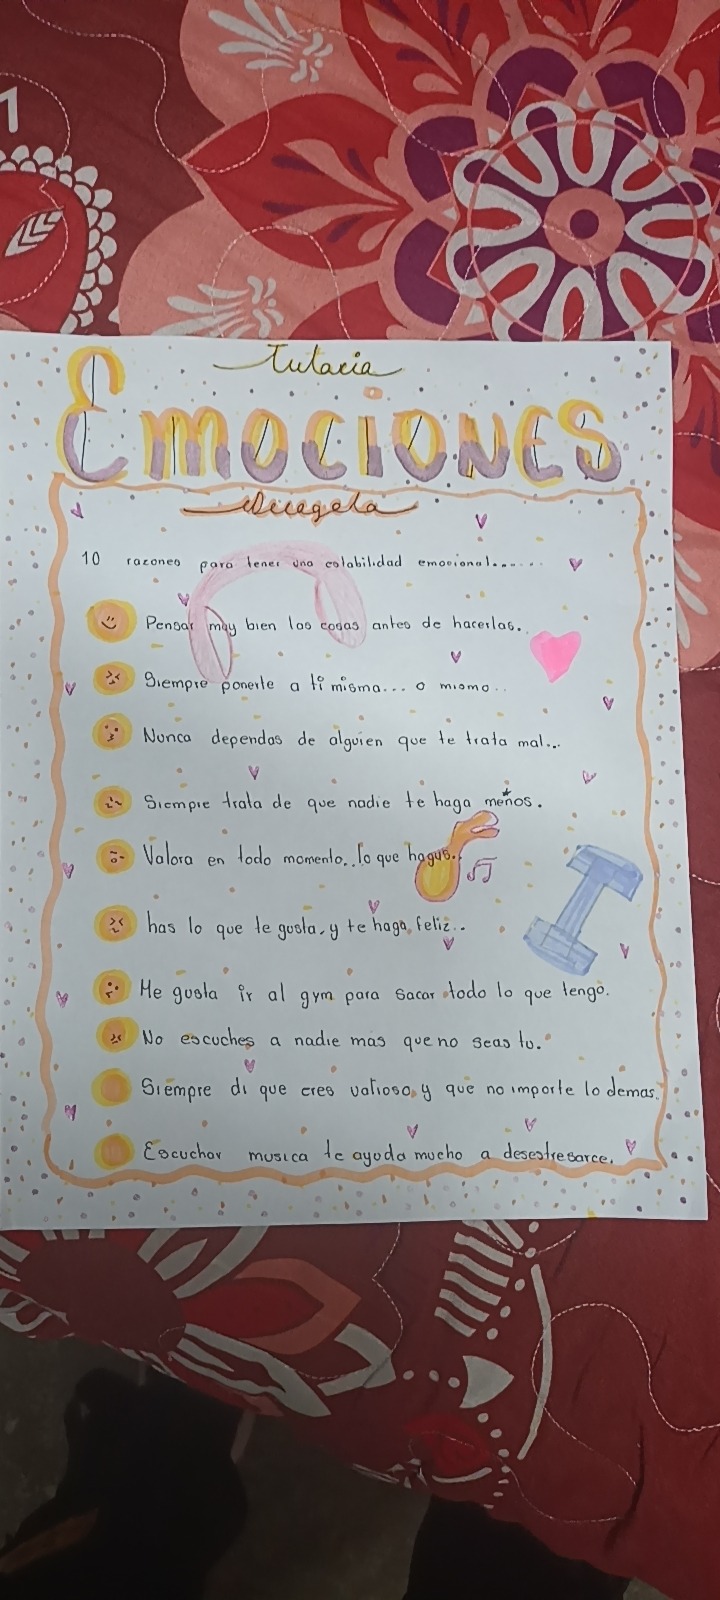 Tutoria
Emociones
Decagola
10 razones para tener una estabilidad emocional.......
Pensar muy bien las cosas antes de hacerlas..
Siempre ponerte a ti misma... o mismo..
Nunca dependas de alguien que te trata mal...
Siempre trata de que nadie te haga menos.
Valora en todo momento..lo que hagus..
has lo que te gusta, y te haga feliz..
Me gusta ir al gym para sacar todo lo que tengo.
No escuches a nadie mas que no seas tu.
Siempre di que eres valioso, y que no importe lo demas.
Escuchar musica te ayuda mucho a desestresarce.